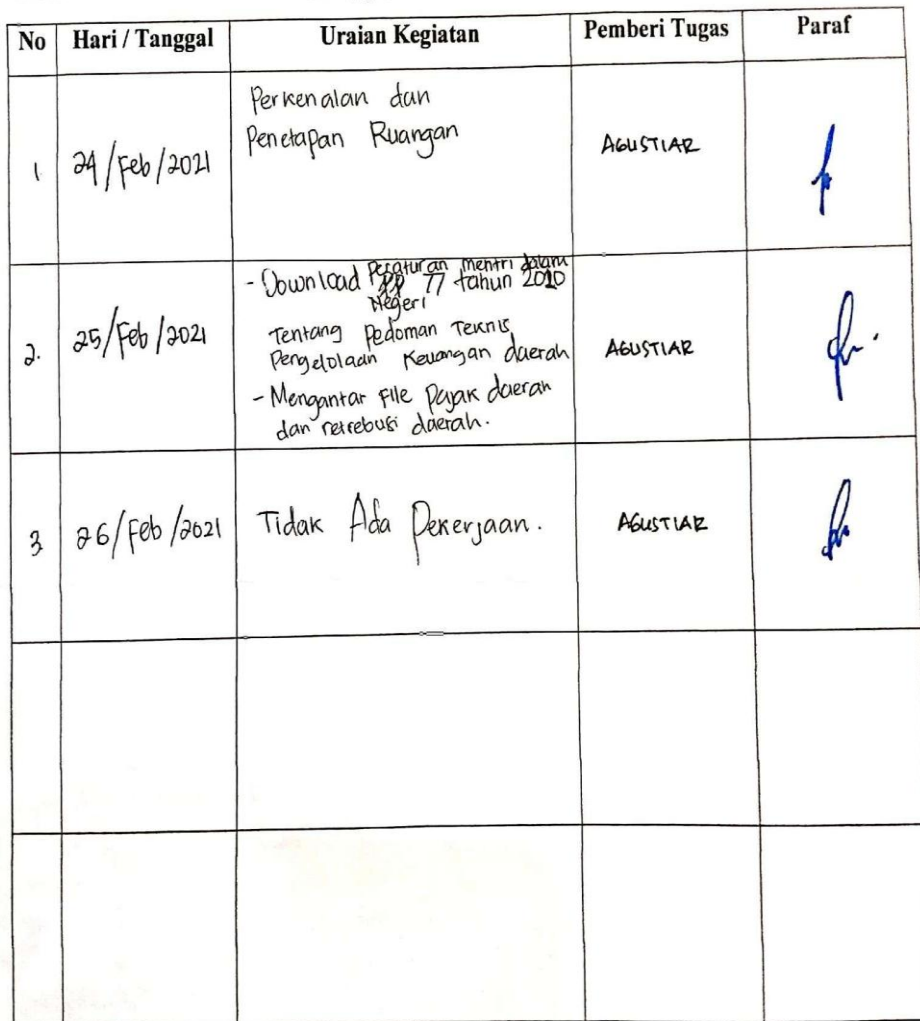 No Hari / Tanggal Uraian Kegiatan Pemberi Tugas Paraf
1. 24/Feb/2021 Perkenalan dan
Penetapan Ruangan AGUSTIAR
2. 25/Feb/2021 - Download Peraturan mentri dalam
Negeri 77 tahun 2020
Tentang Pedoman Teknis
Pengelolaan Keuangan daerah AGUSTIAR
- Mengantar File Pajak daerah
dan retrebusi daerah.
3 26/Feb/2021 Tidak Ada Pekerjaan. AGUSTIAR